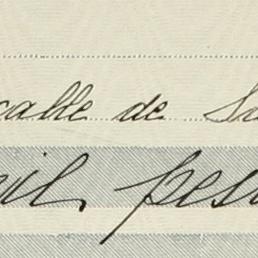 calle de Sa
mil pesos